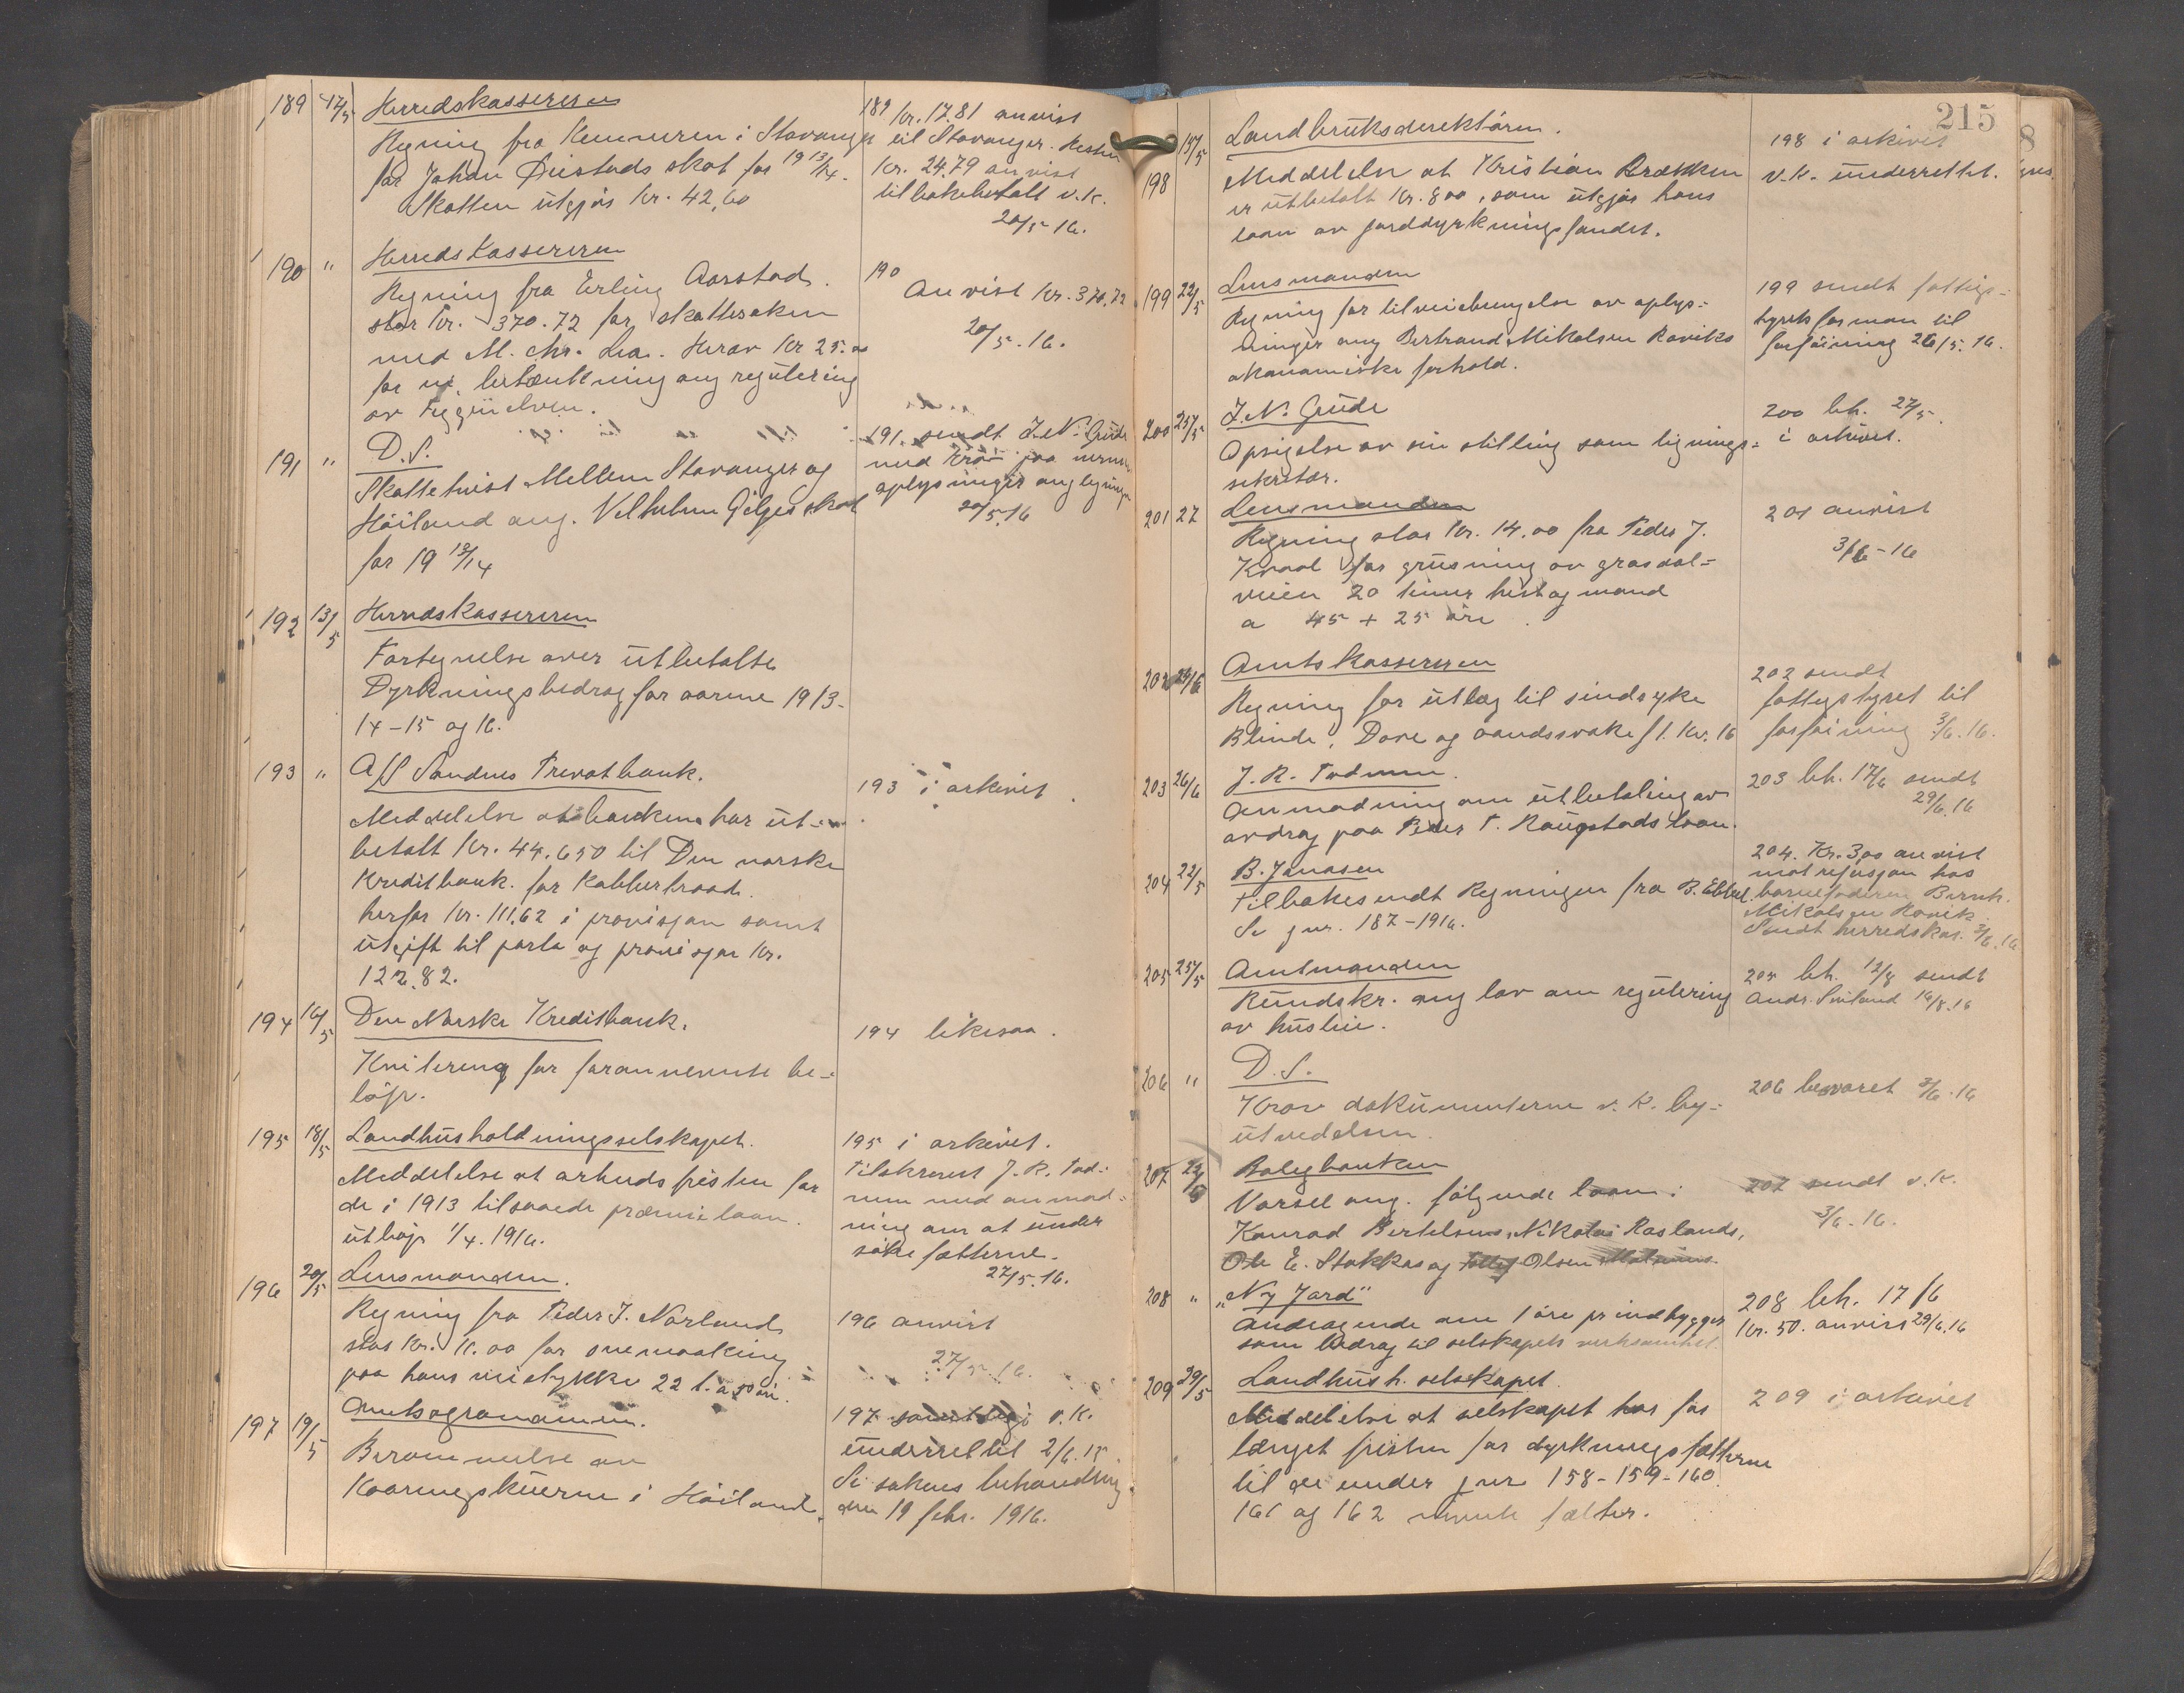 189 12/5 Herredskassereren
Regning fra Kemneren i Stavanger
for Johan Østads skat for 19 13/14.
Skatten utgjør Kr. 42,60
189 Kr. 17.81 anvist
til Stavanger. Resten
Kr. 24.79 anvist
tilbakebetalt v.k.
20/5 16.
190 " Herredskassereren
Regning fra Erling Aarstad.
stor Kr. 370.72 for skattesaken
med M. Chr. Lea. Herav Kr 25.00
for betænkning ang regulering
av Figgenelven.
190 Anvist Kr. 370,72
20/5. 16.
191 " D.S.
Skattetvist Mellem Stavanger og
Høiland ang. Velhelm Giljes skat
for 19 13/14
191. sendt J.N. Grude
med krav paa nermere
oplysninger ang ligningen
20/5 16
192 13/5 Herredskassereren
Fortegnelse over utbetalte
Dyrkningsbedrag for aarene 1913-
14-15 og 16.
193 " A/S Sandnes Privatbank.
Meddelelse at banken har ut-
betalt Kr. 44.650 til Den norske
Kreditbank. for Kobbertraad.
herfor Kr. 111.62 i provisjon samt
utgift til porto og provisjon Kr.
122.82.
193 i arkivet
194 16/5 Den Norske Kreditbank.
Kvitering for forannevnte be-
løp.
194 likesaa.
195 18/5 Landhusholdningsselskapet.
Meddelelse at arbeidsfristen for
de i 1913 tilsagede præmielaan.
utløp 1/4. 1916.
195 i arkivet.
Tilskrevet J. R. Tod-
nem med anmod-
ning om at under
søke fætterne.
27/5. 16.
196 20/5 Lensmanden.
Regning fra Peder J. Norland
stor Kr. 11.00 for snemaaking
paa hans veistykke 22 t. a 50 øre.
196 anvist
27/5 16.
197 19/5 Amtsagronomen.
Berammelse av
Kaaringskuerne i Høiland.
197 v.k.
underrettet 2/6. 15
Se sakens behandling
den 19 febr. 1916.
215
198 15/5 Landbruksderektøren.
Meddelelse at Kristian Brækken
er utbetalt Kr. 800, som utgjør hans
laan av jorddyrkningsfondet.
198 i arkivet
v.k. underrettet.
199 22/5 Lensmanden
Regning for tilveiebringelse av oplys-
ninger ang Bertrand Mikalsen Raviks
økonomiske forhold.
199 sendt fattig-
tyrets forman til
forføining 26/5. 16.
200 25/5 J.N. Grude
Opsigelse av sin stilling som lignings-
sekretær.
200 beh. 27/5.
i arkivet.
201 27 Lensmanden
Regning stor Kr. 14.00 fra Peder J.
Kvaal for grusning av grasdal-
veien 20 timer hest og mand
a 45 + 25 øre.
201 anvist
3/6 - 16
202 Amtskassereren
Regning for utlæg til sindsyke
Blinde, Døve og aandssvake f 1. Kv. 16
202 sendt
fattigstyret til
forføining 3/6. 16.
203 26/6 J. R. Todnem.
Anmodning om utbetaling av
avdrag paa Peder T. Haugstads laan.
203 beh. 17/6 sendt
29/6. 16
204 22/5 B. Jonasen
tilbakesendt Regningen fra B. Ebbel.
Se jnr. 187-1916.
204. Kr. 300 anvist
mot refusjon hos
barnefaderen Bernh.
Mikalsen Ravik
Sendt herredskas. 3/6. 16.
205 25/5 Amtmanden
Rundskr. ang lov om regulering
av husleie.
205 beh. 12/8 sendt
Andr. Sviland 16/8. 16
206 " D.S.
Krav dokumenterne v. k. by-
utvedelsen.
206 besvaret 3/6. 16
207 Boligbanken
Varsel ang. følgende laan:
Konrad Bertelsens, Nikolai Raslands,
Ole E. Stokkas og Olsen
207 sendt v.k.
3/6. 16.
208 " "Ny Jord"
andragende om 1 øre pr indbygger
som bidrag til selskapets verksamhet.
208 beh. 17/6
Kr. 50. anvist 29/6. 16
209 29/5 Landhush. selskapet.
Meddelelse at selskapet har for
længet fristen for dyrkningsfætterne
til de under jnr 158-159-160.
161 og 162 nevnte fætter.
209 i arkivet